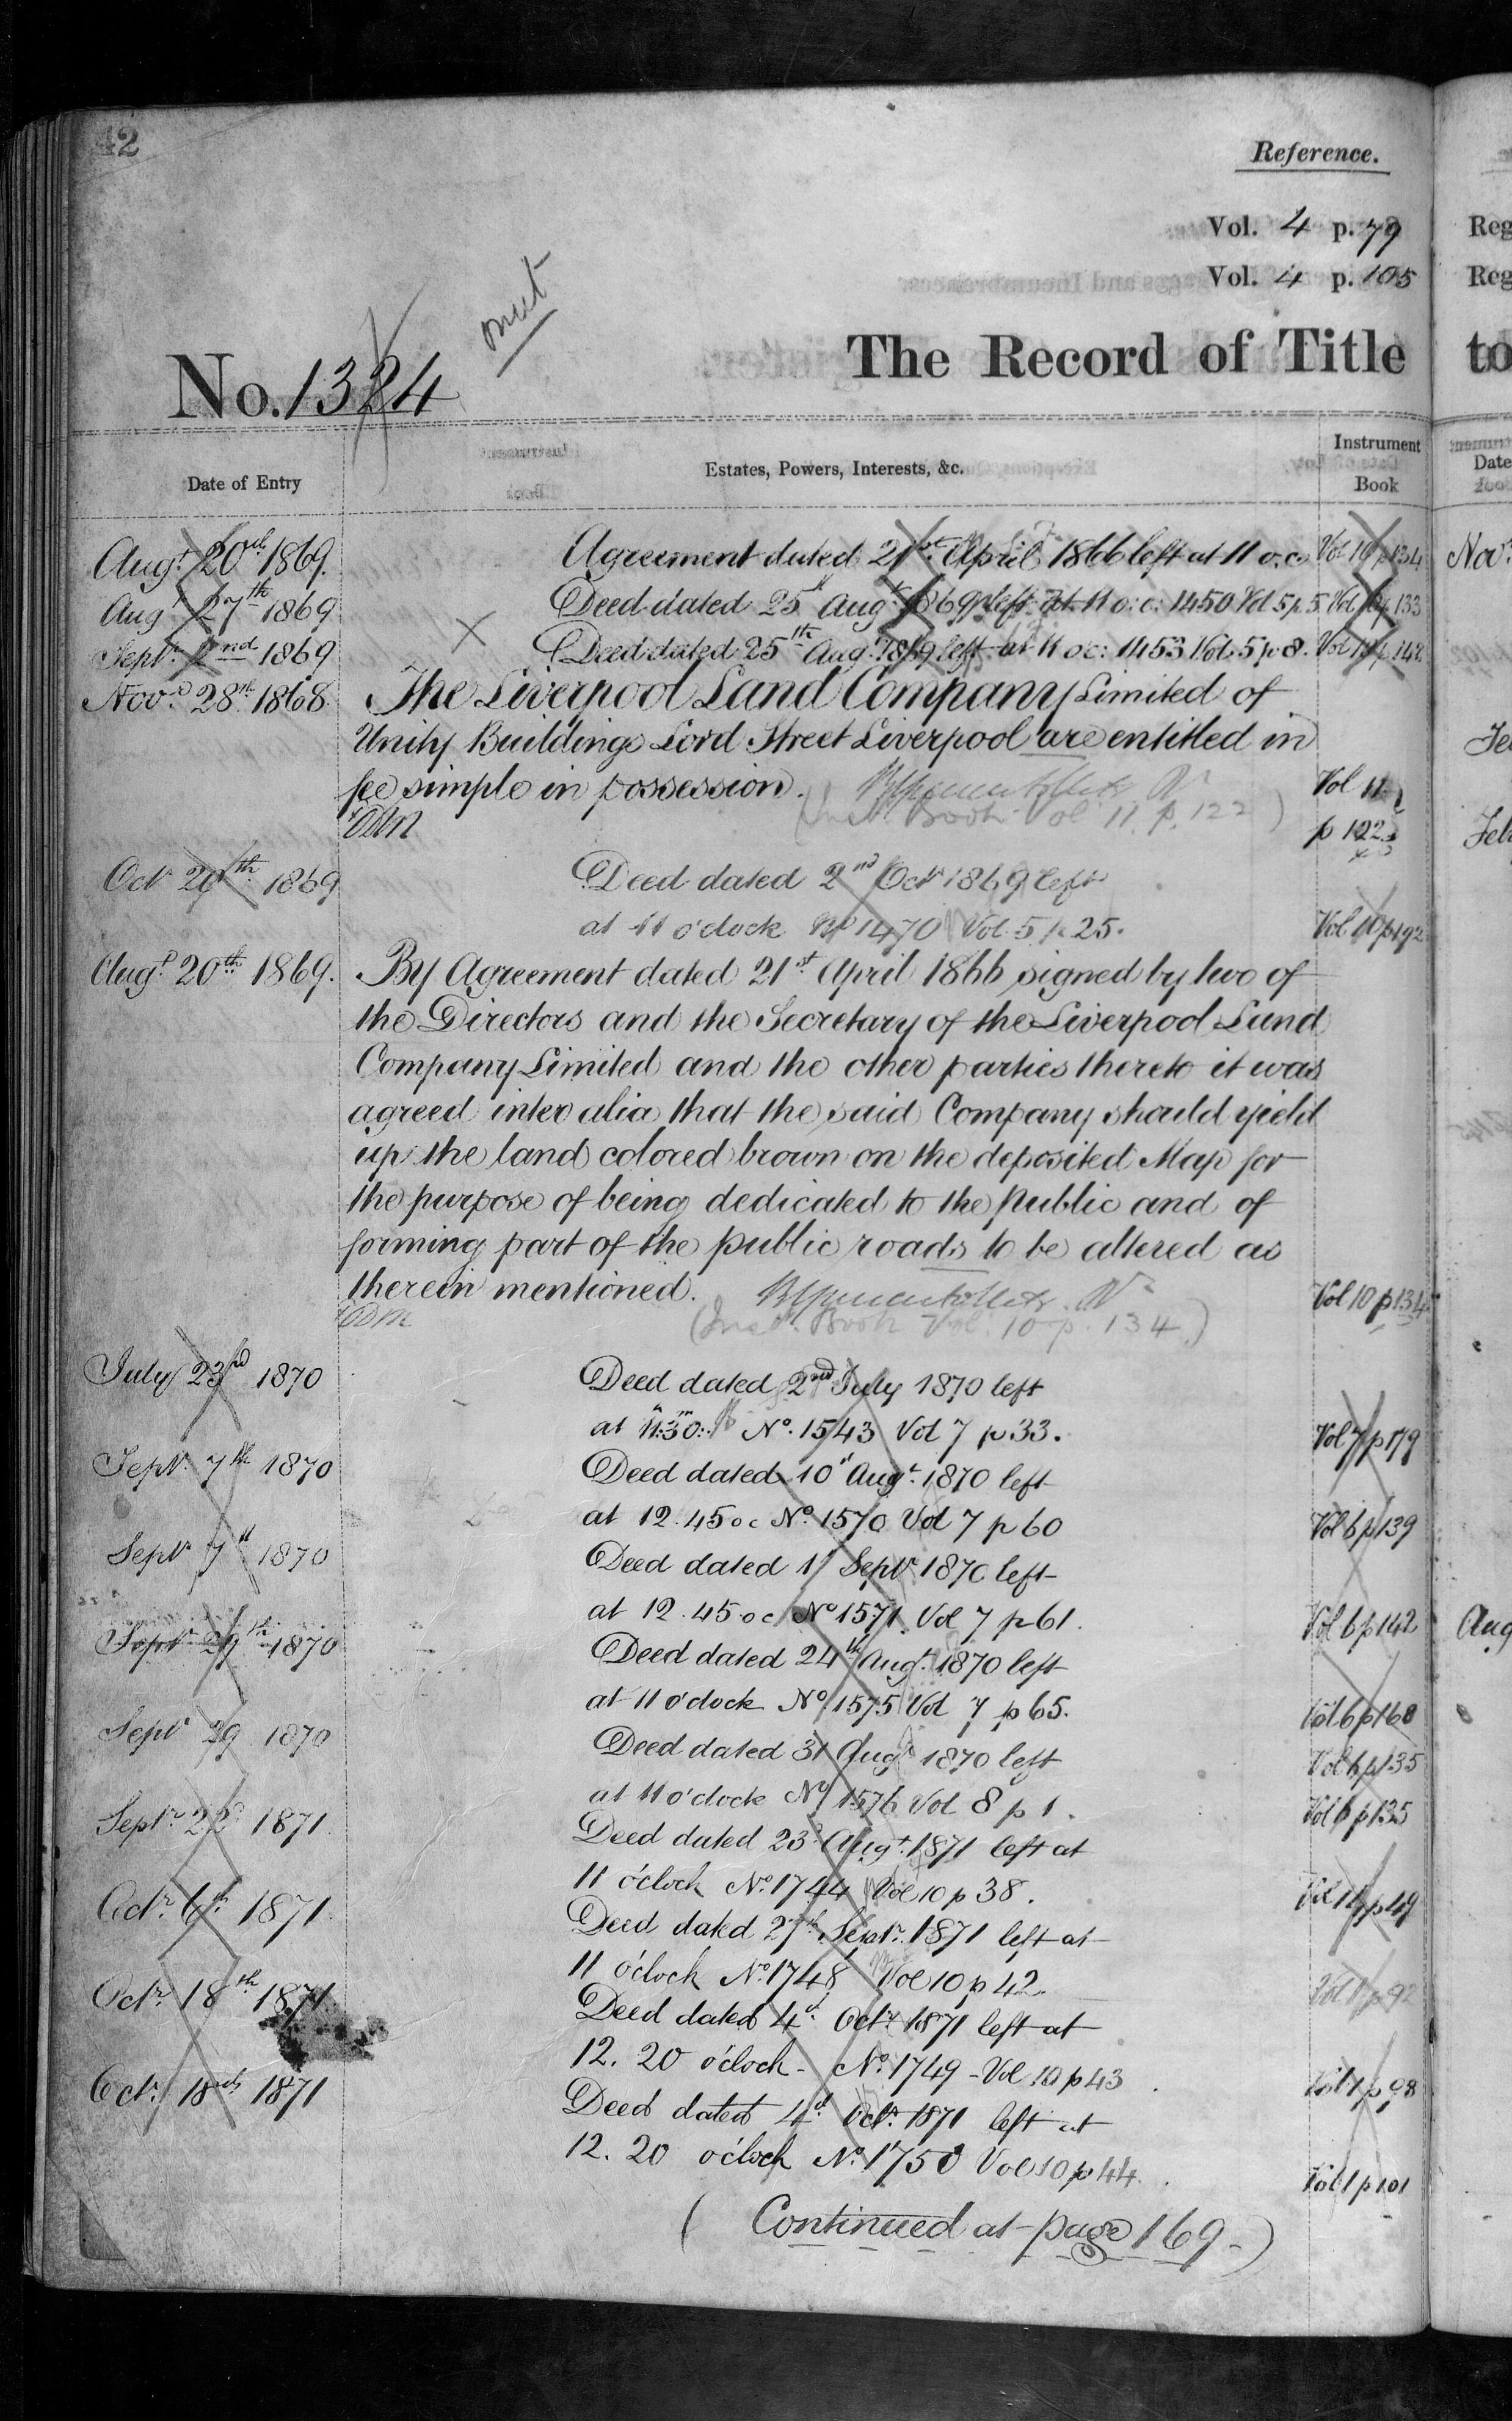 42
Reference.
Vol. 4 p. 79
Vol. 4 p. 105
omit
No. 1324
The Record of Title
Date of Entry
Estates, Powers, Interests, &c.
Instrument Book
Augt. 20th 1869. Agreement dated 21st April 1866 left at 11 o.c. Vol 10 p 134
Augt. 27th 1869 Deed dated 25th Augt 1869 left at 11 o:c: 1450 Vol 5 p 5. Vol p 133
Septr. 2nd 1869 Deed dated 25th Augt. 1869 left at 11 o:c: 1453 Vol 5 p 8. Vol p 142
Novr. 28th 1868 The Liverpool Land Company Limited of
Unity Buildings Lord Street Liverpool are entitled in
fee simple in possession. Vol 11
(Inst. Book Vol 11. p. 122) p 122
Octr 20th 1869 Deed dated 2nd Octr 1869 left
at 11 o'clock No 1470 Vol. 5 p. 25. Vol 10 p 192
Augt 20th 1869. By Agreement dated 21st April 1866 signed by two of
the Directors and the Secretary of the Liverpool Land
Company Limited and the other parties thereto it was
agreed inter alia that the said Company should yield
up the land colored brown on the deposited Map for
the purpose of being dedicated to the public and of
forming part of the public roads to be altered as
therein mentioned. Vol 10 p 134
(Inst. Book Vol. 10 p. 134.)
July 23rd 1870 Deed dated 2nd July 1870 left
at 11:30: No. 1543 Vol 7 p 33. Vol 7 p 179
Septr. 7th 1870 Deed dated 10th Augt. 1870 left
at 12.45 oc No. 1570 Vol 7 p 60 Vol 6 p 139
Septr 7th 1870 Deed dated 1st Septr 1870 left
at 12.45 oc No 1571 Vol 7 p 61. Vol 6 p 142
Septr 29th 1870 Deed dated 24th Augt. 1870 left
at 11 o'clock No 1575 Vol 7 p 65. Vol 6 p 168
Septr 29 1870 Deed dated 31 Augt 1870 left Vol 6 p 135
at 11 o'clock No 1576 Vol 8 p 1. Vol 6 p 135
Septr. 22d 1871. Deed dated 23d Augt. 1871 left at
11 o'clock No. 1744 Vol 10 p 38. Vol p 49
Octr. 6th 1871. Deed dated 27th Septr. 1871 left at
11 o'clock No. 1748 Vol 10 p 42. Vol 1 p 92
Octr. 18th 1871 Deed dated 4th Octr 1871 left at
12. 20 o'clock - No. 1749 - Vol 10 p 43 Vol 1 p 98
Octr. 18th 1871 Deed dated 4th Octr. 1871 left at
12. 20 o'clock No. 1750 Vol 10 p 44. Vol 1 p 101
(Continued at page 169.)
Reg
Reg
to
Date
Novr.
Aug